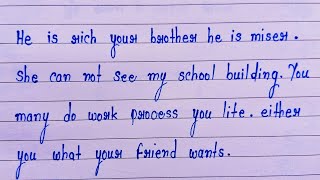 He is rich your brother he is miser.
She can not see my school building. You
many do work process you lite. either
you what your friend wants.